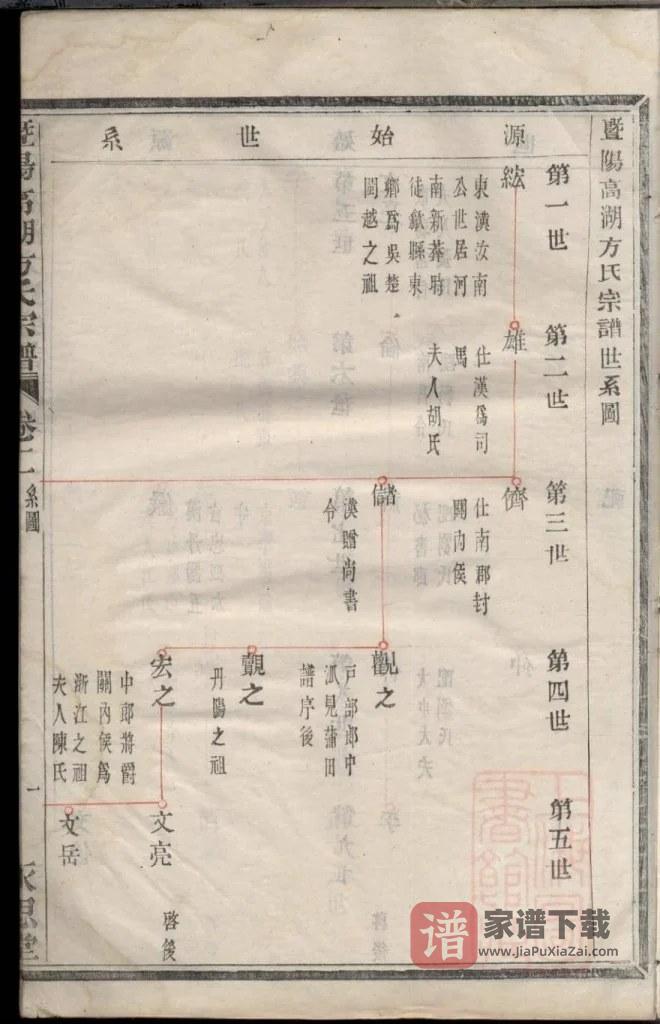 暨陽高湖方氏宗譜世系圖
源始世系
第一世
第二世
第三世
第四世
第五世
紘
東漢汝南
公世居河
南新莽時
徙歙縣東
鄉爲吳楚
閩越之祖
雄
仕漢爲司
馬
夫人胡氏
儕
仕南郡封
關內侯
儲
漢贈尚書
令
觀之
戸部郎中
派見蒲田
譜序後
覿之
丹陽之祖
宏之
中郎將爵
關內侯爲
浙江之祖
夫人陳氏
文亮
啓後
文岳
暨陽高湖方氏宗譜
卷二
系圖
一
永思堂
谱
家谱下载
www.JiaPuXiaZai.com